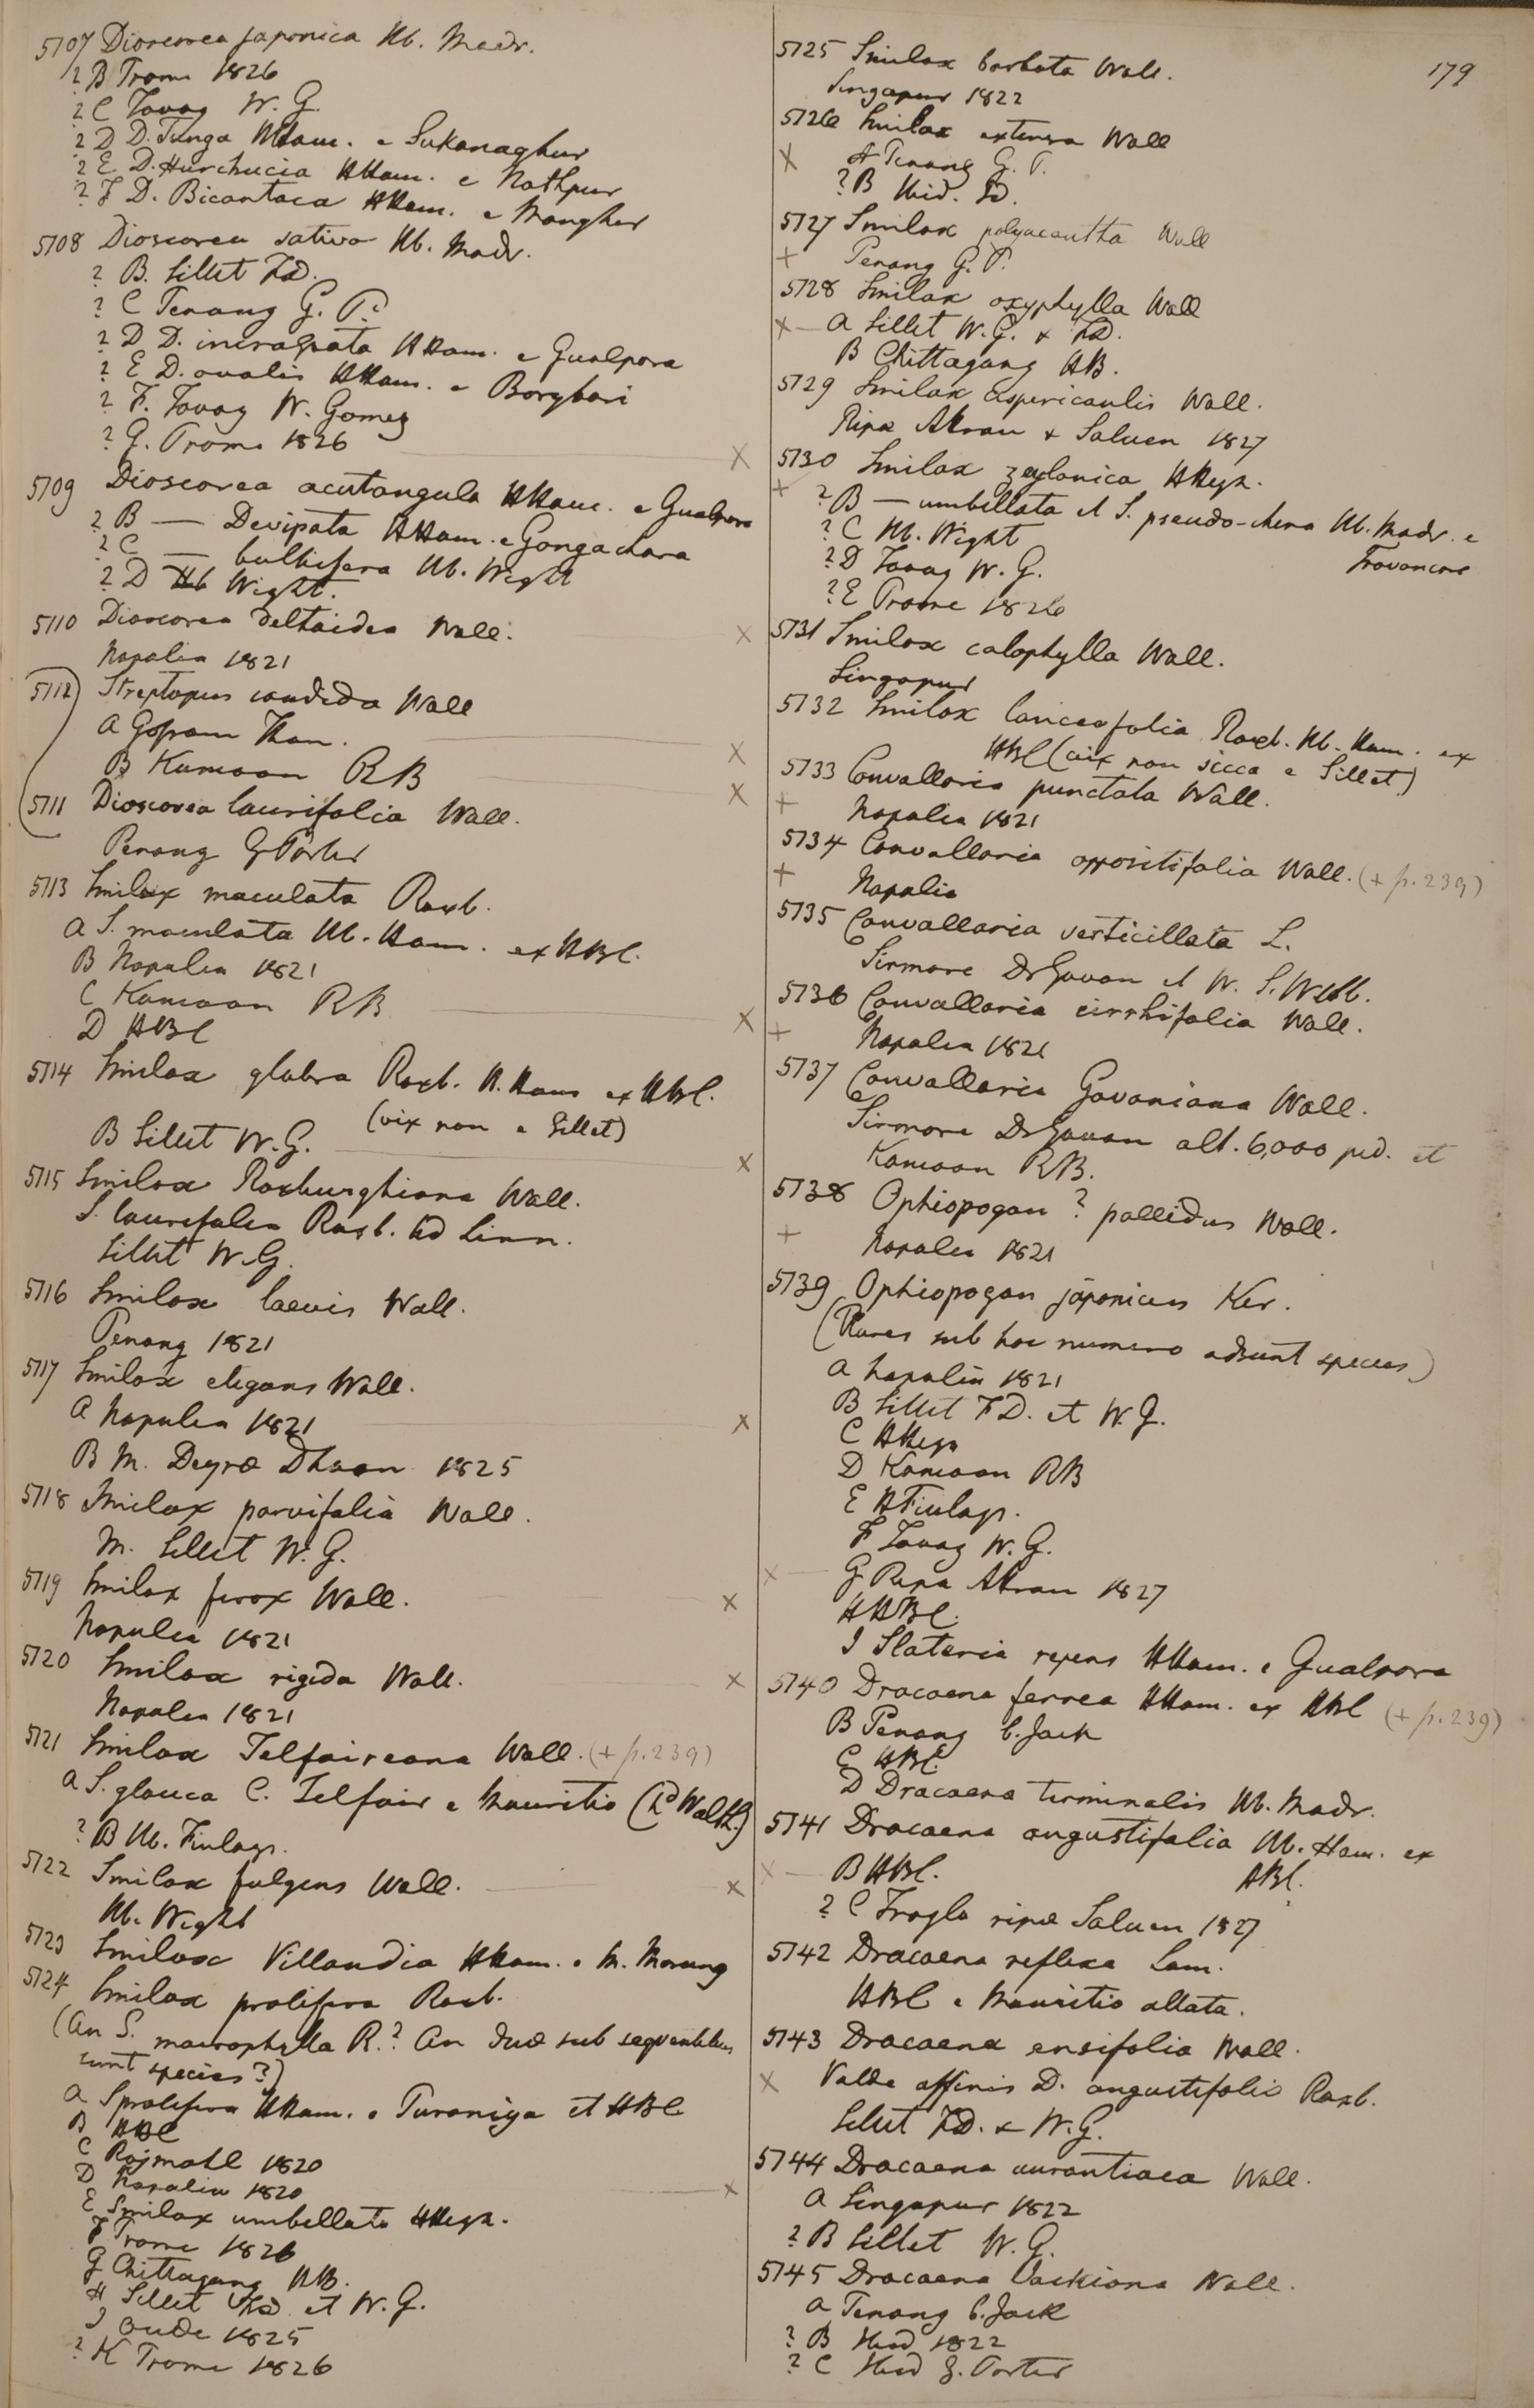 179
5107 Dioscorea japonica Hb. Madr.
? B Prome 1826
? C Tavoy W. G.
? D D. Tunga HHam. e Sukanaghur
? E D. Hurchucia HHam. e Nathpur
? F D. Bicantaca HHam. e Mongher
5108 Dioscorea sativa Hb. Madr.
? B. Sillet FD.
? C Penang G. P.?
? D D. incraspata HHam. e Gualpara
? E D. ovalis HHam. e Borybari
? F. Tavoy W. Gomez
? G. Prome 1826
5109 Dioscorea acutangula HHam. e Gualpara
? B — Devipata HHam. e Gongachara
? C — bulbifera Hb. Wight
? D Hb Wight.
5110 Dioscorea deltoidea Wall.
Napalia 1821
5112) Streptopus candida Wall
A Gosam Than.
B Kamoon RB
5111 Dioscorea laurifolia Wall.
Penang G Porter
5113 Smilax maculata Roxb.
A S. maculata Hb. Ham. ex HBC.
B Napalia 1821
C Kamoon RB
D HBC
5114 Smilax glabra Roxb. H. Ham ex HBC.
(vix non e Sillet)
B Sillet W. G.
5115 Smilax Roxburghiana Wall.
S. laurifolia Roxb. nd Linn.
Sillet W. G.
5116 Smilax laevis Wall.
Penang 1821
5117 Smilax elegans Wall.
A Napalia 1821
B M. Deyra Dhoon 1825
5718 Smilax parvifolia Wall.
M. Sillet W. G.
5119 Smilax ferox Wall.
Napalia 1821
5120 Smilax rigida Wall.
Napalia 1821
5121 Smilax Telfaireana Wall. (+ p. 239)
A S. glauca C. Telfair e Mauritio (nd Walth.)
? B Hb. Finlays.
5122 Smilax fulgens Wall.
Hb. Wight
5123 Smilax Villandia HHam. e M. Morung
5124 Smilax prolifera Roxb.
(An S. macrophylla R.? An duæ sub sequentibus
sunt species?)
A S prolifera HHam. e Puraniya et HBC
B HBC
C Rajmahl 1820
D Napalia 1820
E Smilax umbellata HHeyn.
F Prome 1826
G Chittagong HB.
H Sillet FD et W. G.
I Oude 1825
? K Prome 1826
5125 Smilax barbata Wall.
Singapur 1822
5126 Smilax extensa Wall
X A Penang G. P.
? B Ibid. FD.
5127 Smilax polyacantha Wall
+ Penang G. P.
5128 Smilax oxyphylla Wall
X — A Sillet W. G. & FD.
B Chittagong HB.
5129 Smilax aspericaulis Wall.
Ripa Attran & Saluen 1827
X 5130 Smilax zeylanica HHeyn.
+ ? B — umbellata et S. pseudo-china Hb. Madr. e
Travancore
? C Hb. Wight
? D Tavoy W. G.
? E Prome 1826
X 5131 Smilax calophylla Wall.
Singapur
5132 Smilax lanceæfolia Roxb. Hb. Ham. ex
HBC (vix non sicca e Sillet)
5133 Convallaria punctata Wall.
+ Napalia 1821
5134 Convallaria oppositifolia Wall. (+ p. 239)
+ Napalia
5135 Convallaria verticillata L.
Sirmore Dr Govan et W. S. Webb.
5136 Convallaria cirrhifolia Wall.
+ Napalia 1821
5137 Convallaria Govaniana Wall.
Sirmore Dr Govan alt. 6,000 ped. et
Kamoon RB.
5138 Ophiopogon ? pallidus Wall.
+ Napalia 1821
5139 Ophiopogon japonicus Ker.
(Plures sub hoc numero adsunt species)
A Napalia 1821
B Sillet FD. et W. G.
C HHeyn
D Kamoon RB
E H Finlays.
F Tavoy W. G.
X — G Ripa Attran 1827
H HBC.
I Slateria repens HHam. e Gualpara
5140 Dracaena ferrea HHam. ex HBC (+ p. 239)
B Penang C. Jack
C HBC.
D Dracaena terminalis Hb. Madr.
5141 Dracaena angustifolia Hb. Ham. ex
HBC.
X — B HBC.
? C Trogla ripæ Saluen 1827
5142 Dracaena reflexa Lam.
HBC e Mauritio allata.
5143 Dracaena ensifolia Wall.
X Valde affinis D. angustifolio Roxb.
Sillet FD. & W. G.
5144 Dracaena aurantiaca Wall.
A Singapur 1822
? B Sillet W. G.
5145 Dracaena Jackiana Wall.
A Penang C. Jack
? B Ibid 1822
? C Ibid G. Porter